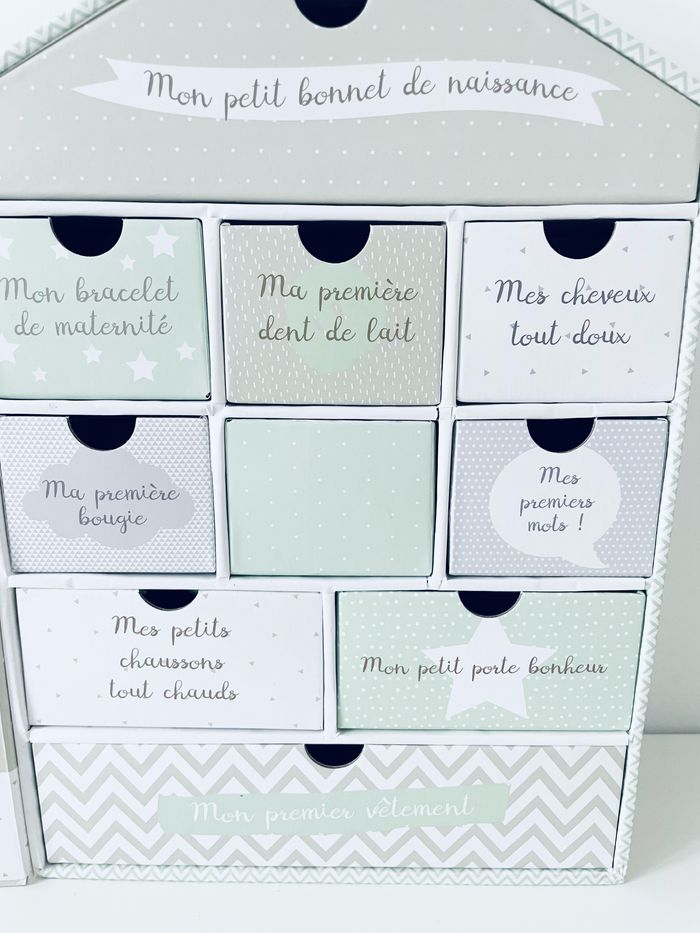 Mon petit bonnet de naissance
Mon bracelet
de maternité
Ma première
dent de lait
Mes cheveux
tout doux
Ma première
bougie
Mes
premiers
mots !
Mes petits
chaussons
tout chauds
Mon petit porte bonheur
Mon premier vêtement